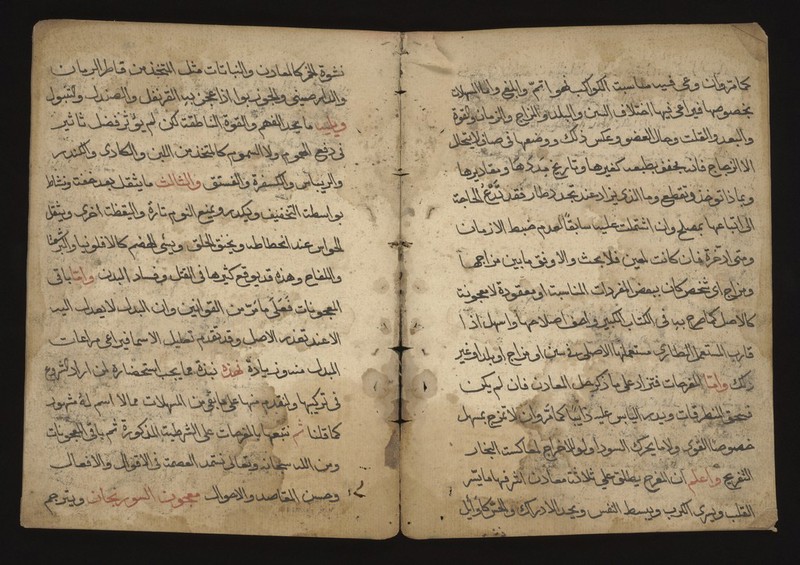 كما مر وان وعى فيها مناسبت الكواكب فهو اتم وابلغ واما المسهلات
بخصوصها فيراعى فيها اختلاف السن والبلد والمزاج والزمان والقوة
والبعد والقلت وحال العضو وعكس ذلك ووضعها فى صاف لا يتحلل
الا الزجاج فانه يجفف بطبعه كغيرها وتاريخ مددها ومقاديرها
وبماذا توخذ وتقطع وما الذى يزاد عند تجدد طار فقد تدع الحاجة
الى اتباعها بمصلح وان اشتملت عليه سابقا لعدم ضبط الازمان
ومتى ادخرة فان كانت لمعين فلا بحث والا وفق ما بين مزاجها
ومزاج اى شخص كان ببعض المفردات المناسبة او معقودة لا معجونة
كالاصل كما صرح به فى الكتاب الكبير واضف اصلاحها واسهل اذا
قارب المستعمل الطارى مستعملها الاصلى فى سن او مزاج او بلد او غير
ذلك واما المفرحات فتزاد على ما ذكر بجعل المعادن فان لم يكن
فبحق المنطرقات ويبدر الياس عليه ذايبا كما مر وان لا تمزج بمسهل
خصوصا القوى ولا ما يحرك السودا ولو للاخراج لمعاكست البخار
التفريح واعلم ان المفرح يطلق على ثلاثة معادن اشرفها ما سر
القلب وسرى الكرب وبسط النفس ويحد الادراك والحس كاوايل
نشوة الخمر كالمعادن والنباتات مثل المتخذ من قاطر الرمان
والدارصينى والمعجون بوا اذا عجن به القرنفل والصندل والتنبول
ويليه ما يحد الفهم والقوة الناطقة لكن لم يؤثر فضل تاثير
فى دفع الهموم ولا السموم كالمتخذ من اللبن والكادى والكندر
والريباس والكسفرة والفستق والثالث ما يثقل بعد خفة ونشاط
بواسطة التخفيف ويكدر ويمنع النوم تارة واليقظة اخرى ويثقل
الحواس عند انحطاطه ويخنق الحلق وبسئ الهضم كالافلونيا والبرشعثا
واللفاح وهذه قد يوقع كثيرها فى القتل وفساد البدن واما باقى
المعجونات فعلى ما مر من القوانين وان البدل لا يعدل اليه
الا عند تعذر الاصل وقد تقدم تحليل الاسما فيراعى مراعات
البدل منه وزيادة فهذه نبذة مما يجب استحضارة لمن اراد الشروع
فى تركيبها ولنقدم منها على ما بقى من المسهلات مما لا اسم له مشهور
كما قلنا ثم نتبعها بالمفرحات على الشرطية المذكورة ثم باقى المعجونات
ومن الله سبحانه وتعالى نستمد العصمة فى الاقوال والافعال
وحسن المقاصد والاحوال معجون السورنجان ويترجم